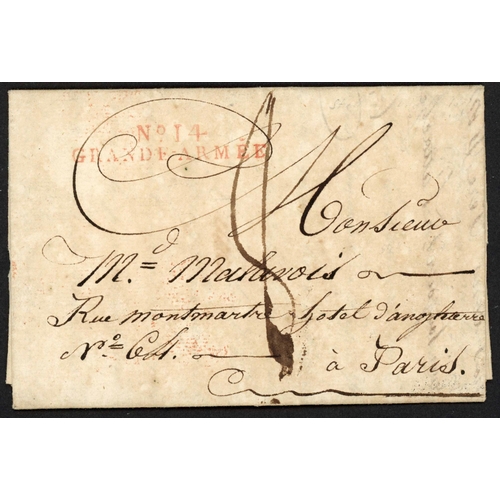 No 14
GRANDE-ARMÉE
Monsieur
M.d
Rue montmartre hotel d'angleterre
No 64.
à Paris.